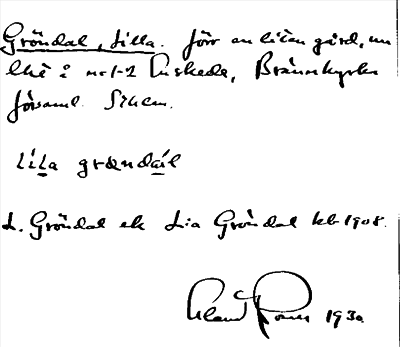 Gröndal, Lilla. Förr en liten gård, nu
litt å nr 1-2 Enskede, Brännkyrka
församl. Sthlm.
lịla grœndạ̄l
L. Gröndal ek Lia Gröndal kb 1908.
1930